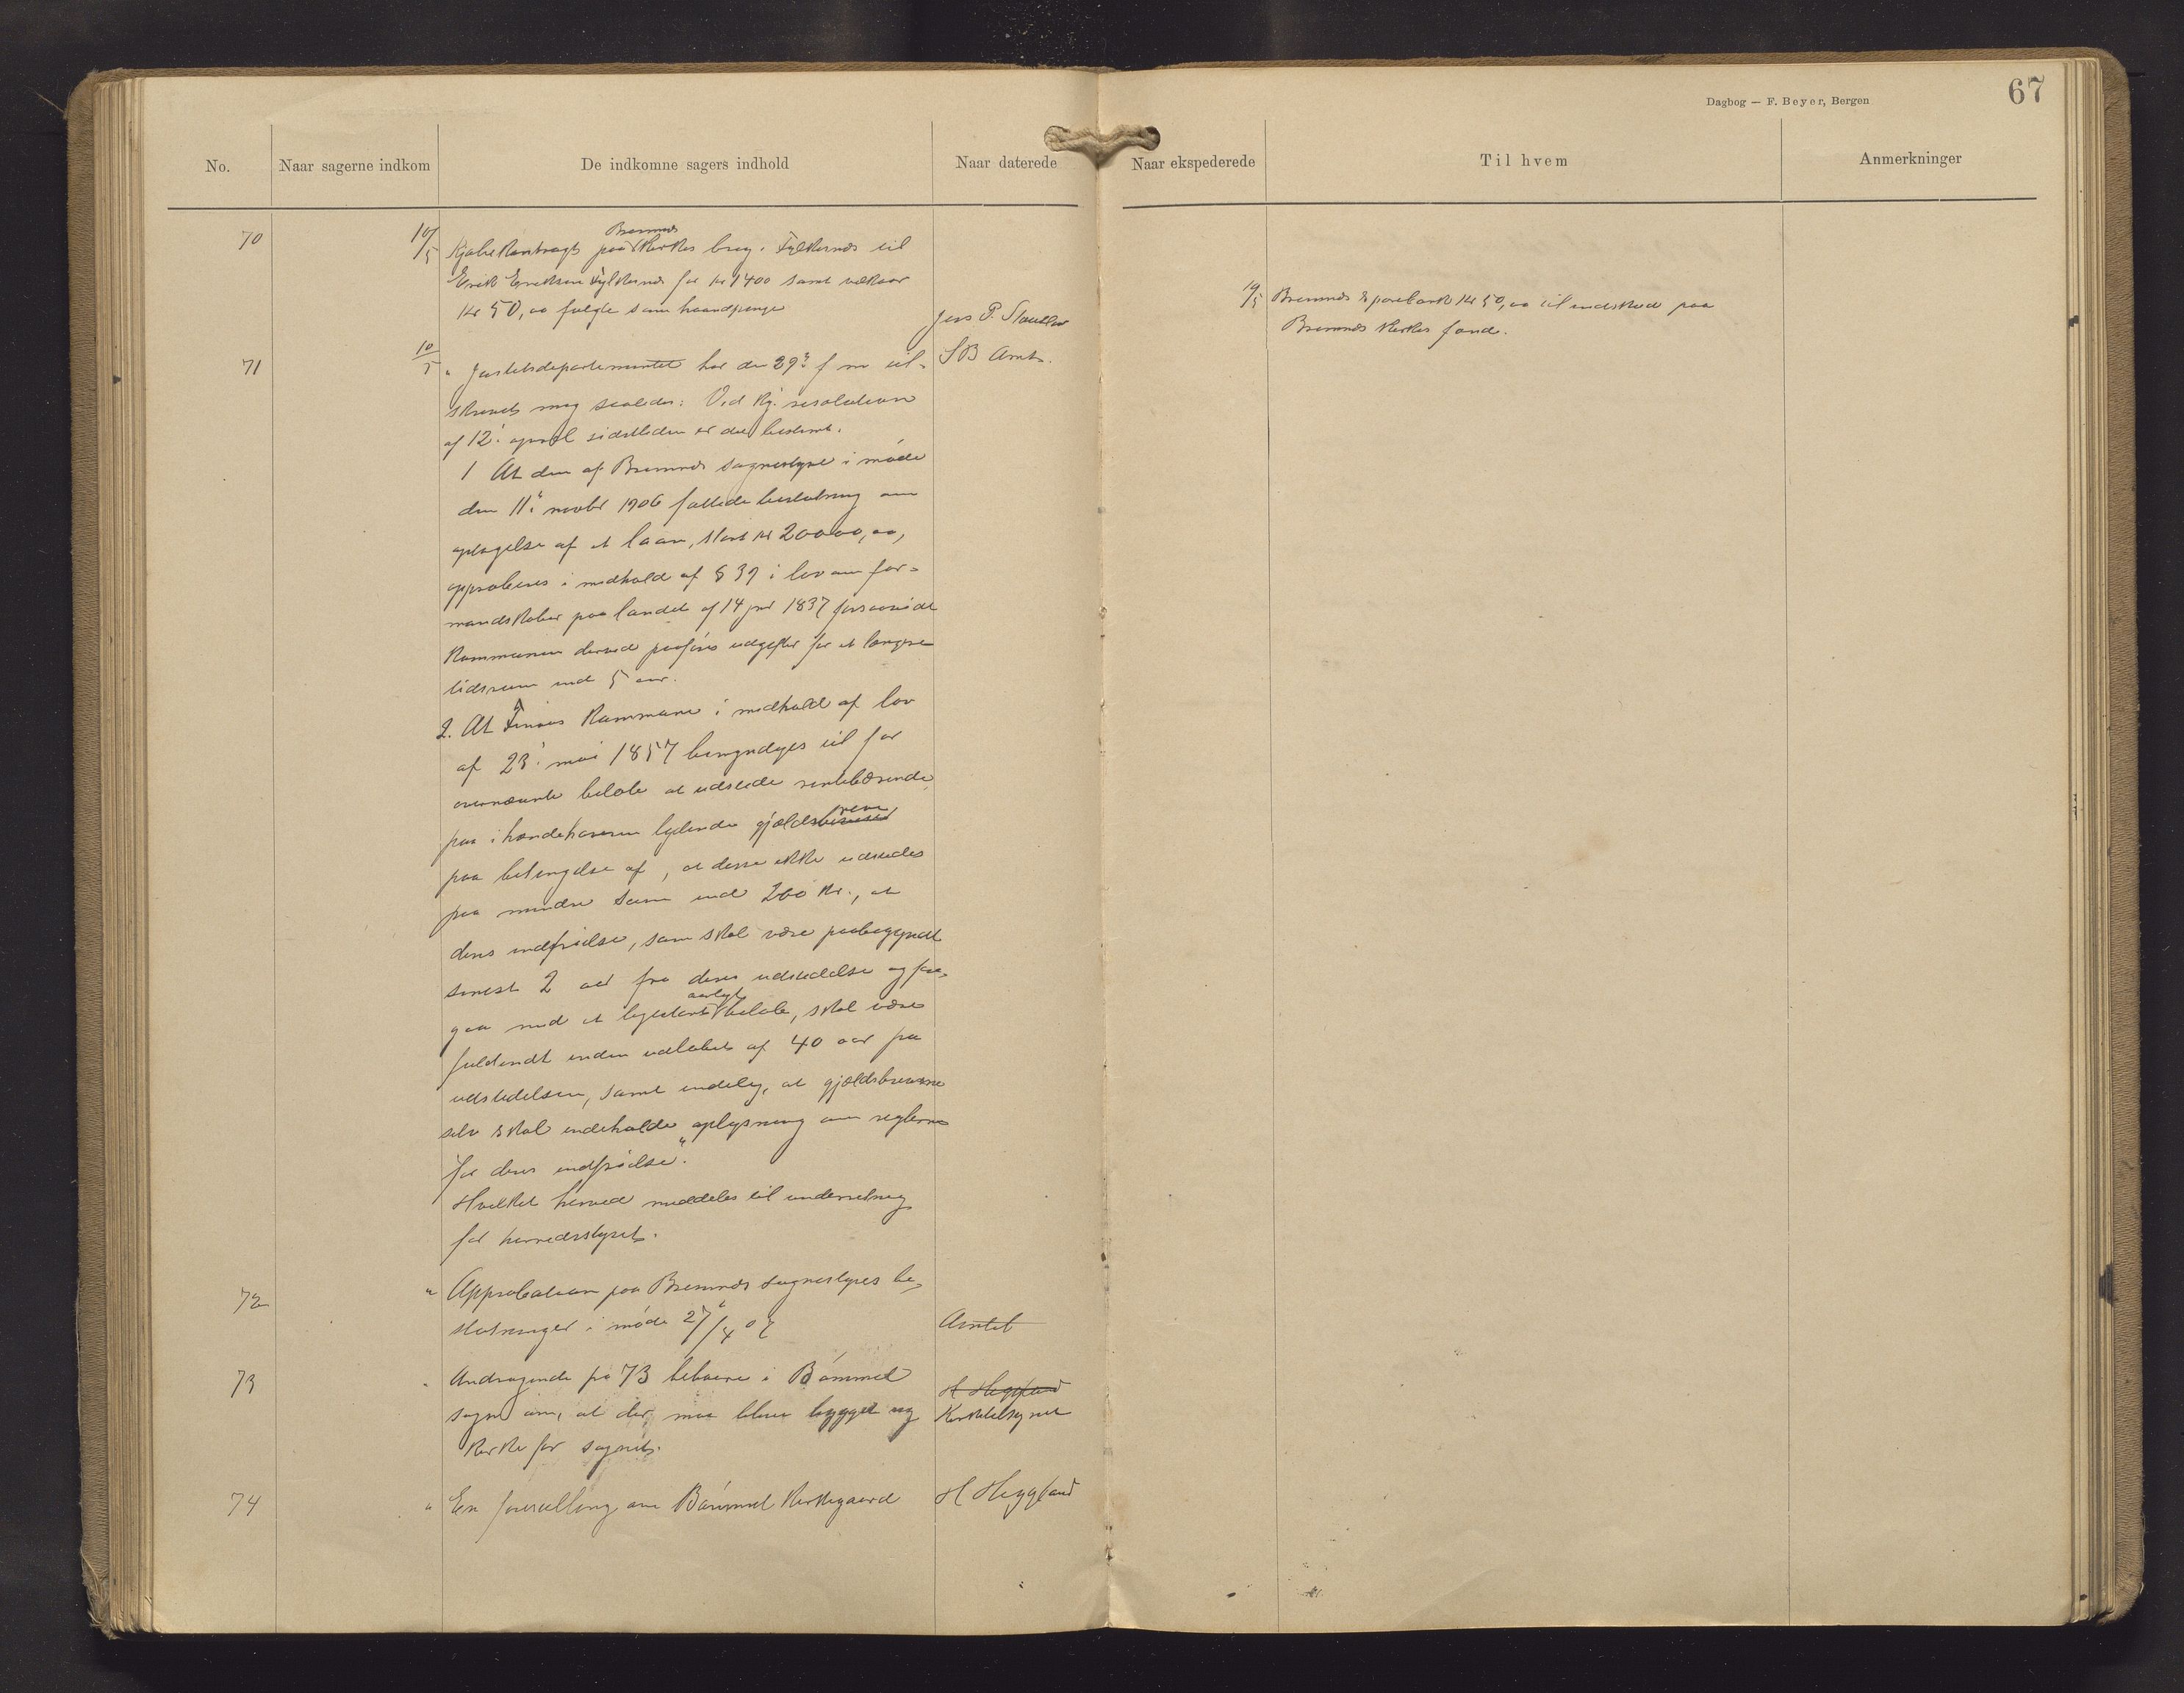 Dagbog — F. Beyer, Bergen
67
No.
Naar sagerne indkom
De indkomne sagers indhold
Naar daterede
Naar ekspederede
Til hvem
Anmerkninger
70
10/5
Bremnes
Kjøbekontragt paa kirkes brug i Fylkesnes til
Erik Eriksen Fylkesnes for kr 1400 samt vilkaar
Kr 50,00 fulgte som haandpenge
Jens P.
10/5 Bremnes sparebank Kr 50,00 til indskud paa
Bremnes kirkes fond.
71
10/5
„ Justitsdepartementet har den 29de f m til-
SB Amt.
skrevet mig saaledes: Ved kg. resolution
af 12' april sidstleden er det bestemt.
1 At den af Bremnes sognestyre i møde
den 11' novbr 1906 fattede beslutning om
optagelse af et laan, stort kr 20000,00,
approberes i medhold af § 39 i lov om for-
mandskaber paa landet af 14 jnr 1837 forsaavidt
kommunen derved paaføres udgifter for et længere
tidsrum end 5 aar.
2. At Finaas kommune i medhold af lov
af 23' mai 1857 bemyndiges til for
ovennævnte beløb at udstede rentebærende
paa ihændehaveren lydende gjældsbreve
paa betingelse af, at disse ikke udstedes
paa mindre sum end 200 kr., at
deres indfrielse, som skal være paabegyndt
senest 2 aar fra deres udstedelse og fore-
gaa med et ligestort aarligt beløb, skal være
fuldendt inden udløbet af 40 aar fra
udstedelsen, samt endelig, at gjældsbrevene
selv skal indeholde oplysning om reglerne
for deres indfrielse."
Hvilket herved meddeles til underretning
for herredsstyret.
72
„ Approbation paa Bremnes sognestyres be-
slutninger i møde 27/4 07
Amtet
73
„ Andragende fra 73 beboere i Bømmel
H Heggland
sogn om, at der maa blive bygget ny
Kirketilsynet
kirke for sognet.
74
„ En forestilling om Bømmel kirkegaard
H Heggland